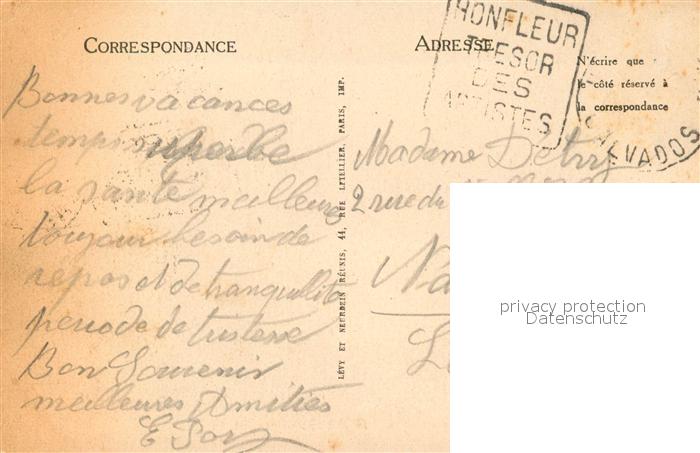 CORRESPONDANCE
ADRESSE
HONFLEUR
TRESOR
DES
ARTISTES
N'écrire que
le côté réservé à
la correspondance
CALVADOS
Bonnes vacances
temps superbe
la santé meilleure
toujour besoin de
repos et de tranquillité
periode de tristesse
Bon Souvenir
meilleures Amitiés
LÉVY ET NEURDEIN RÉUNIS, 44, RUE LETELLIER, PARIS, IMP.
Madame
2 rue du
privacy protection
Datenschutz